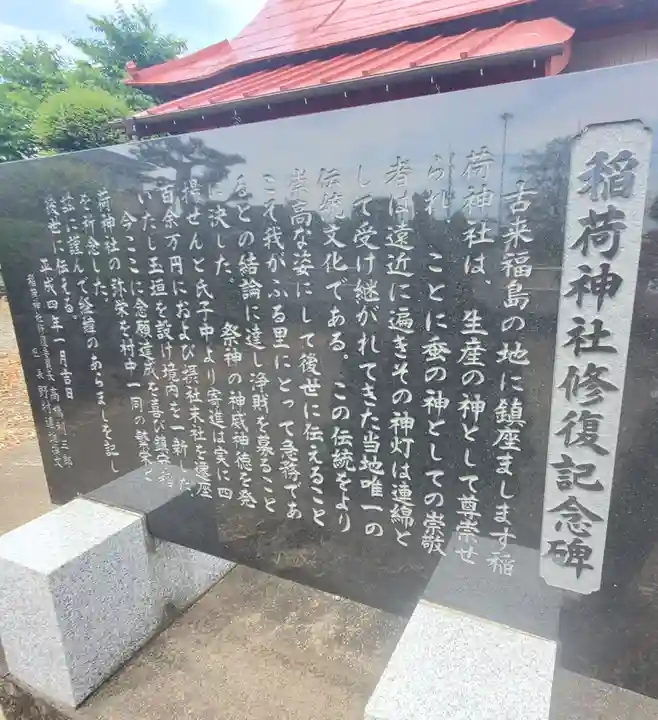 稲荷神社修復記念碑
古来福島の地に鎮座まします稲
荷神社は、生産の神として尊崇せ
られ ことに蚕の神としての崇敬
者は遠近に遍きその神灯は連綿と
して受け継がれてきた当地唯一の
伝統文化である。この伝統をより
崇高な姿にして後世に伝えること
こそ我がふる里にとって急務であ
るとの結論に達し浄財を募ること
に決した。 祭神の神威神徳を発
揚せんと氏子中より寄進は実に四
百余万円におよび摂社末社を遷座
いたし玉垣を設け境内を一新した
今ここに念願達成を喜び鎮守稲
荷神社の弥栄を村中一同の繁栄と
を祈念した。
茲に謹んで経緯のあらましを記し
後世に伝える。
平成四年一月吉日
稲荷神社修復委員長 高橋利三郎
区長 野村